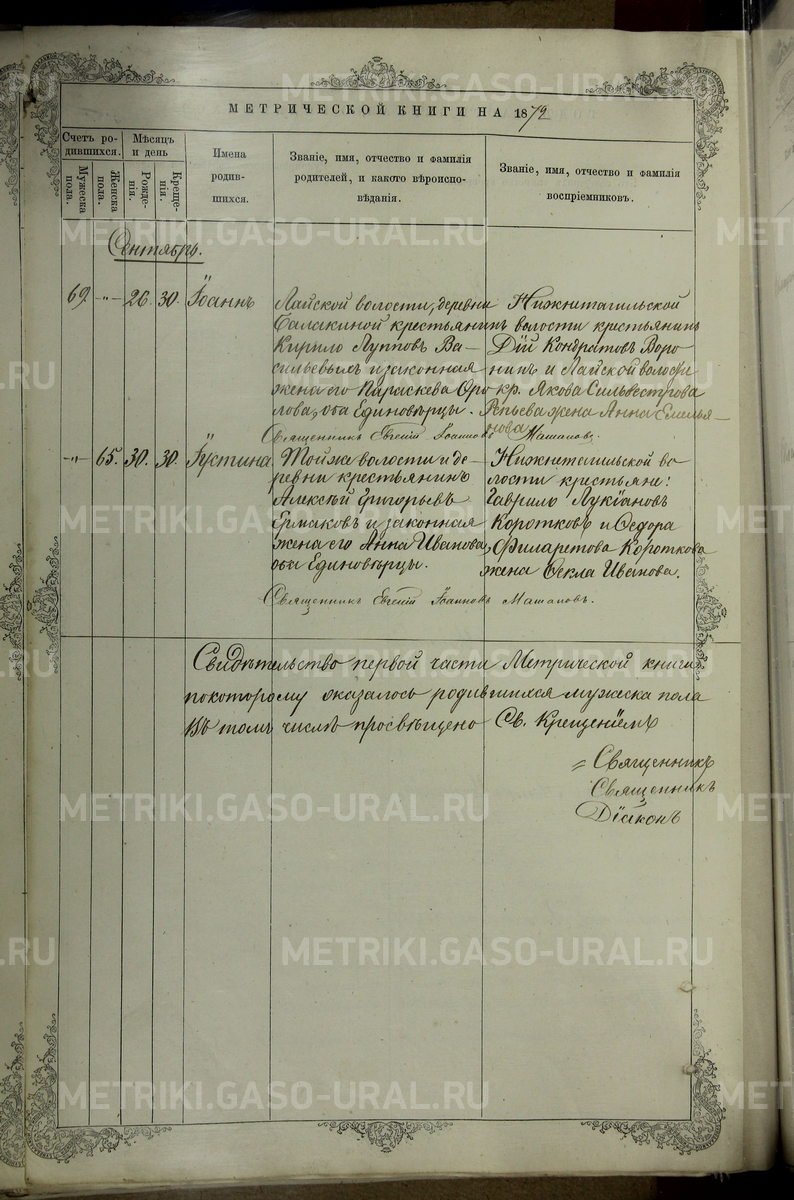 МЕТРИЧЕСКОЙ КНИГИ НА 1872
Счетъ ро-
дившихся.
Мѣсяцъ
и день
Мужеска
пола.
Женска
пола.
Рожде-
нія.
Креще-
нія.
Имена
родив-
шихся.
Званіе, имя, отчество и фамилія
родителей, и какого вѣроиспо-
вѣданія.
Званіе, имя, отчество и фамилія
воспріемниковъ.
Сентябрь.
69. -"- 26. 30. Іоаннъ
Лайской волости, деревни
Балакиной крестьянинъ
Кирило Лупповъ Ва-
сильевыхъ и законная
жена его Параскева Оро
лова, оба Единовѣрцы.
Нижнетагильской
волости крестьянинъ
Дій Кондратовъ Воро-
нинъ и Лайской волости
кр. Якова Сильвестрова
Репьева жена Анна Емелья-
нова
Священникъ Евгеній Іоанновъ Машановъ.
-"- 65. 30. 30. Іустина
Той же волости и де-
ревни крестьянинъ
Алексѣй Григорьевъ
Ермаковъ и законная
жена его Анна Иванова,
оба Единовѣрцы.
Нижнетагильской во-
лости крестьяне:
Гаврило Лукіановъ
Коротковъ и Ѳедора
Филаретова Короткова
жена Ѳекла Иванова.
Священникъ Евгеній Іоанновъ Машановъ.
Свидѣтельство первой части Метрической книги
по которому оказалось родившихся мужеска пола
Въ томъ числѣ просвѣщено Св. Крещеніемъ
Священникъ
Священникъ
Діаконъ
METRIKI.GASO-URAL.RU